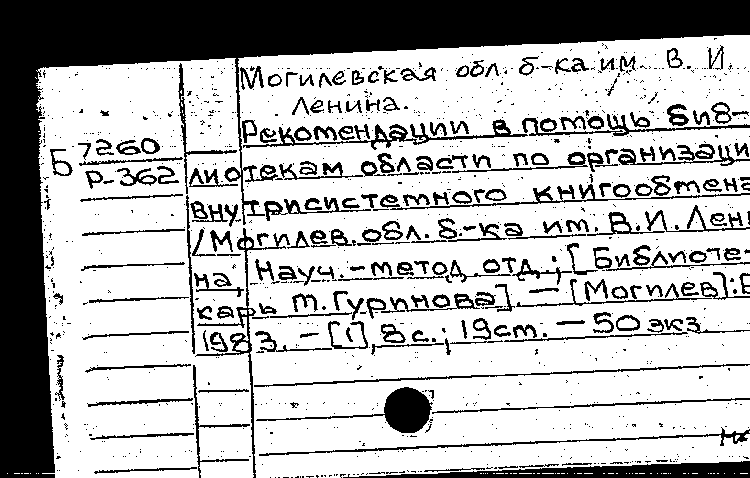 Могилевская обл. б-ка им. В. И.
Ленина.
Рекомендации в помощь биб-
Б 7260
Р-362
лиотекам области по организаци
внутрисистемного книгообмена
/Могилев. обл. б-ка им. В.И. Лени
на, Науч.-метод. отд.; [Библиоте-
карь Т. Гуринова]. — [Могилев]: Б
1983. — [1], 8 с.; 19 ст. — 50 экз.